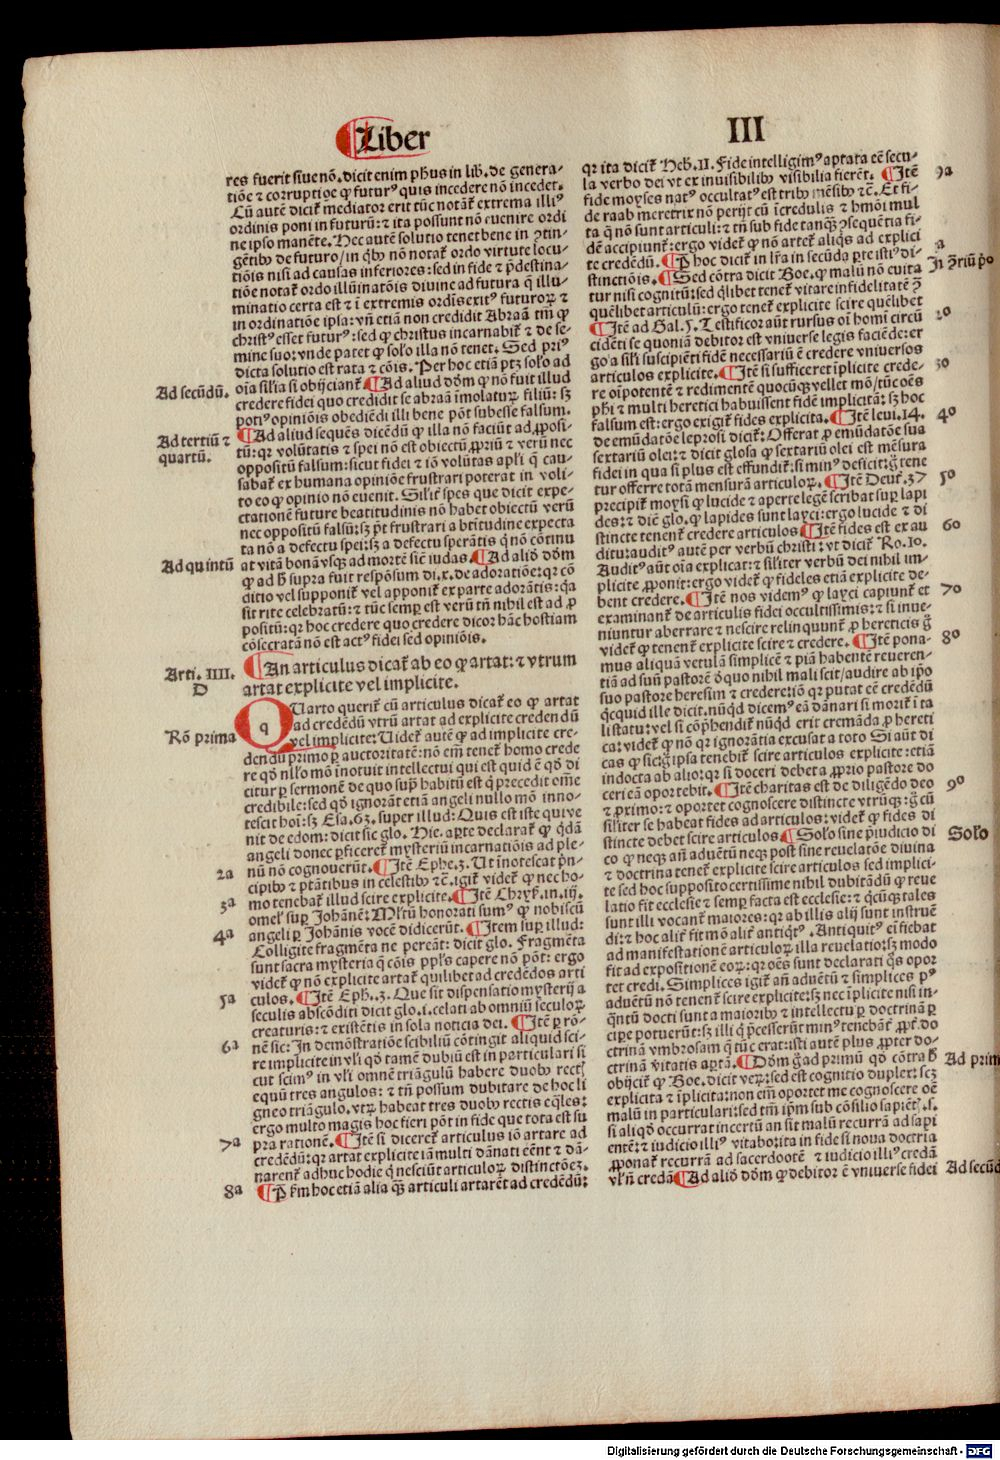 Liber
III
res fuerit siue nō. dicit enim phūs in lib. de genera-
tiōe ⁊ corruptiōe ꝙ futurꝰ quis incedere nō incedet.
Cū autē dicit᷑ mediator erit tūc notāt᷑ extrema illiꝰ
ordinis poni in futurū: ⁊ ita possunt nō euenire ordi
ne ipso manēte. Hec autē solutio tenet bene in ꝯtin-
gētibꝫ de futuro/in qͥbꝫ nō notat᷑ ordo virtute locu-
tiōis nisi ad causas inferiores: sed in fide ⁊ p̄destina-
tiōe notat᷑ ordo illūinatōis diuine ad futura q̄ illu-
minatio certa est ⁊ ī extremis ordīs exitꝰ futuroꝝ ⁊
in ordinatiōe ipsa: vn̄ etiā non credidit Abraā tm̄ ꝙ
christꝰ esset futurꝰ: sed ꝙ christus incarnabit᷑ ⁊ de se-
mine suo: vnde patet ꝙ solo illa nō tenet. Sed priꝰ
dicta solutio est rata ⁊ cōis. Per hoc etiā ptꝫ solo ad
oīa silīa si obijciant᷑. ¶ Ad aliud dōm ꝙ nō fuit illud
credere fidei quo credidit se abraā īmolaturꝝ filiū: sꝫ
potiꝰ opiniōis obediēdi illi bene pōt subesse falsum.
¶ Ad aliud sequēs dicēdū ꝙ illa nō faciūt ad ꝓposi-
tū: qꝛ volūtatis ⁊ spei nō est obiectū ꝓpriū ⁊ verū nec
oppositū falsum: sicut fidei ⁊ iō volūtas apli q̄ cau-
sabat᷑ ex humana opiniōe frustrari poterat in voli-
to eo ꝙ opinio nō euenit. Silit᷑ spes que dicit expe-
ctationē future beatitudinis nō habet obiectū verū
nec oppositū falsū: sꝫ pōt frustrari a btītudine expecta
ta nō a defectu spei: sꝫ a defectu sperātis q̄ nō cōtinu
at vitā bonā vsqꝫ ad mortē sic̄ iudas. ¶ Ad aliō dōm
ꝙ ad h̄ supra fuit respōsum di. x. de adoratiōe: qꝛ cō
ditio vel supponit᷑ vel apponit᷑ ex parte adorātis: q̄a
sit rite celebratū: ⁊ tūc semꝑ est verū tn̄ nihil est ad ꝓ
positū: qꝛ hoc credere quo credere dicor hāc hostiam
cōsecratā nō est actꝰ fidei sed opiniōis.
¶ An articulus dicat᷑ ab eo ꝙ artat: ⁊ vtrum
artat explicite vel implicite.
QUarto querit᷑ cū articulus dicat᷑ eo ꝙ artat
ad credēdū vtrū artat ad explicite credendū
vel implicite: Uidet᷑ autē ꝙ ad implicite cre-
dendū primo ꝑ auctoritatē: nō em̄ tenet᷑ homo crede
re qō nullo mō īnotuit intellectui qui est quid ē qō di
citur ꝑ sermonē de quo supͣ habitū est q̄ precedit om̄e
credibile: sed qō ignorāt etiā angeli nullo mō inno-
tescit hoī: sꝫ Esa. 63. super illud: Quis est iste qui ve
nit de edom: dicit sic glo. Hic aꝑte declarat᷑ ꝙ qdā
angeli donec ꝑficeret᷑ mysteriū incarnatiōis ad ple-
nū nō cognouerūt. ¶ Itē Ephe. 3. Ut īnotescat p̄n-
cipibꝫ ⁊ ptātibus in celestibꝫ ⁊c̄. igit᷑ videt᷑ ꝙ nec ho-
mo tenebat᷑ illud scire explicite. ¶ Itē Chrys. in. iij.
omel' suꝑ Johānē: Mltū honorati sumꝰ ꝙ nobiscū
angeli ꝑ Johānis vocē didicerūt. ¶ Item suꝑ illud:
Colligite fragmēta ne pereāt: dicit glo. Fragmēta
sunt sacra mysteria q̄ cōis pplūs capere nō pōt: ergo
videt᷑ ꝙ nō explicite artat᷑ quilibet ad credēdos arti
culos. ¶ Itē Eph. 3. Que sit dispensatio mysterij a
seculis abscōditi dicit glo. i. celati ab omniū seculoꝝ
creaturis: ⁊ existētis in sola noticia dei. ¶ Itē ꝑ rō-
nē sic: In demōstratiōe scibiliū cōtingit aliquid sci-
re implicite in vl'i qō tamē dubiū est in particulari si
cut scimꝰ in vl'i omnē triāgulū habere duobꝫ rectꝭ
equū tres angulos: ⁊ tn̄ possum dubitare de hoc li
gneo triāgulo. vtꝝ habeat tres duobꝫ rectis eq̄les:
ergo multo magis hoc fieri pōt in fide que tota est su
pra rationē. ¶ Itē si diceret᷑ articulus iō artare ad
credēdū: qꝛ artat explicite iā multi dānati eēnt ⁊ dā-
narent᷑ adhuc hodie q̄ nesciūt articuloꝝ distinctōeꝫ.
¶ Pͤt̄ hoc etiā alia qͣꝫ articuli artarēt ad credēdū:
Ad secūdū.
Ad tertiū ⁊
quartū.
Ad quintū
Arti. IIII.
D
Rō prima
2a
3a
4a
5a
6a
7a
8a
qꝛ ita dicit᷑ Heb. II. Fide intelligimꝰ aptata eē secu-
la verbo dei vt ex inuisibilibꝫ visibilia fierēt. ¶ Itē
fide moyses natꝰ occultatꝰ est tribꝫ mēsibꝫ ⁊c̄. Et fi-
de raab meretrix nō perijt cū īcredulis ⁊ hmōi mul
ta q̄ nō sunt articuli: ⁊ tn̄ sub fide tanqͣꝫ ꝯsequētia fi-
dē accipiunt᷑: ergo videt᷑ ꝙ nō artet᷑ aliqͥs ad explici
te credēdū. ¶ P hoc dicit᷑ in lr̄a in secūda ꝑte istiꝰ di-
stinctiōis. ¶ Sed cōtra dicit Boe. ꝙ malū nō euita
tur nisi cognitū: sed qͥlibet tenet᷑ vitare infidelitatē ꝯ
quēlibet articulū: ergo tenet᷑ explicite scire quēlibet
¶ Itē ad Gal. 5. Testificor aūt rursus oī homī circū
cidēti se quoniā debitor est vniuerse legis faciēde: er
go a sil'i suscipiēti fidē necessariū ē credere vniuersos
articulos explicite. ¶ Itē si sufficeret īplicite crede-
re oīpotentē ⁊ redimentē quocūqꝫ vellet mō/tūc oēs
phī ⁊ multi heretici habuissent fidē implicitā: sꝫ hoc
falsum est: ergo exigit᷑ fides explicita. ¶ Itē leui. 14.
de emūdatōe leprosi dicit᷑: Offerat ꝓ emūdatōe sua
sextariū olei: ⁊ dicit glosa ꝙ sextariū olei est mēsura
fidei in qua si plus est effundit᷑: si minꝰ deficit: g̊ tene
tur offerre totā mensurā articuloꝝ. ¶ Itē Deut᷑. 37
precipit᷑ moysi ꝙ lucide ⁊ aperte legē scribat suꝑ lapi
des: ⁊ diē glo. ꝙ lapides sunt layci: ergo lucide ⁊ di
stincte tenent᷑ credere articulos ¶ Itē fides est ex au
ditu: auditꝰ autē per verbū christi: vt dicit᷑ Ro. 10.
Auditꝰ aūt oīa explicat: ⁊ silīter verbū dei nihil im-
plicite ꝓponit: ergo videt᷑ ꝙ fideles etiā explicite de-
bent credere. ¶ Itē nos videmꝰ ꝙ layci capiunt᷑ et
examinant᷑ de articulis fidei occultissimis: ⁊ si inue-
niuntur aberrare ⁊ nescire relinquunt᷑ ꝓ hereticis g̊
videt᷑ ꝙ tenent᷑ explicite scire ⁊ credere. ¶ Itē pona-
mus aliquā vetulā simplicē ⁊ piā habentē reueren-
tiā ad suū pastorē ð quo nihil mali scit/audire ab ip̄o
suo pastore heresim ⁊ credere: iō qꝛ putat eē credēdū
qͥcquid ille dicit. nūqͥd dicemꝰ eā dānari si morit᷑ ī ta
li statu: vel si cōp̄hendit᷑ nūqͥd erit cremāda ꝓ hereti
ca: videt᷑ ꝙ nō qꝛ ignorātia excusat a toto Si aūt di
cas ꝙ sic: g̊ ipsa tenebit᷑ scire articulos explicite: etiā
indocta ab alio: qꝛ si doceri debet a ꝓprio pastore do
ceri eā oportebit. ¶ Itē charitas est de diligēdo deo
⁊ primo: ⁊ oportet cognoscere distincte vtrūqꝫ: g̊ cū
silīter se habeat fides ad articulos: videt᷑ ꝙ fides di
stincte debet scire articulos. ¶ Solo sine p̄iudicio di
co ꝙ neqꝫ an̄ aduētū neqꝫ post sine reuelatōe diuina
⁊ doctrina tenet᷑ explicite scire articulos sed implici-
te sed hoc supposito certissime nihil dubitādū ꝙ reue
latio fit ecclesie ⁊ semꝑ facta est ecclesie: ⁊ qͥcūqꝫ tales
sunt illi vocant᷑ maiores: qꝛ ab illis alij sunt instruē
di: ⁊ hoc alit᷑ fit mō alit᷑ antiqͥtꝰ. Antiquitꝰ ei fiebat
ad manifestationē articuloꝝ illa reuelatio: sꝫ modo
fit ad expositionē eoꝝ: qꝛ oēs sunt declarati qͦs opor
tet credi. Simplices igit᷑ an̄ aduētū ⁊ simplices pꝰ
aduētū nō tenent᷑ scire explicite: sꝫ nec īplicite nisi in-
qͣntū docti sunt a maioribꝫ ⁊ intellectu ꝑ doctrinā ꝑ
cipe potuerūt: sꝫ illi q̄ p̄cesserūt minꝰ tenebāt᷑ ꝓpt᷑. do
ctrinā vmbrosam q̄ tūc erat: isti autē plus ꝓpter do-
ctrinā vītatis aꝑtā. ¶ Dōm g̊ ad primū qō cōtra h̄
obijcit᷑ ꝙ Boe. dicit veꝝ: sed est cognitio duplex: scꝫ
explicita ⁊ īplicita: non eīm oportet me cognoscere oē
malū in particulari: sed tm̄ ip̄m sub cōsilio sapiētꝭ. s.
si aliqō occurrat incertū an sit malū recurrā ad sapi
entē: ⁊ iudicio illiꝰ vitabo: ita in fide si noua doctria
ꝓponat᷑ recurrā ad sacerdootē ⁊ iudicio illiꝰ credā
vl' n̄ credā ¶ Ad aliō dōm ꝙ debitor ē vniuerse fidei
9a
a
In ꝯriū po
2o
3o
4o
5o
6o
7o
8o
9o
Solo
Ad prim
Ad secūd
Digitalisierung gefördert durch die Deutsche Forschungsgemeinschaft - DFG